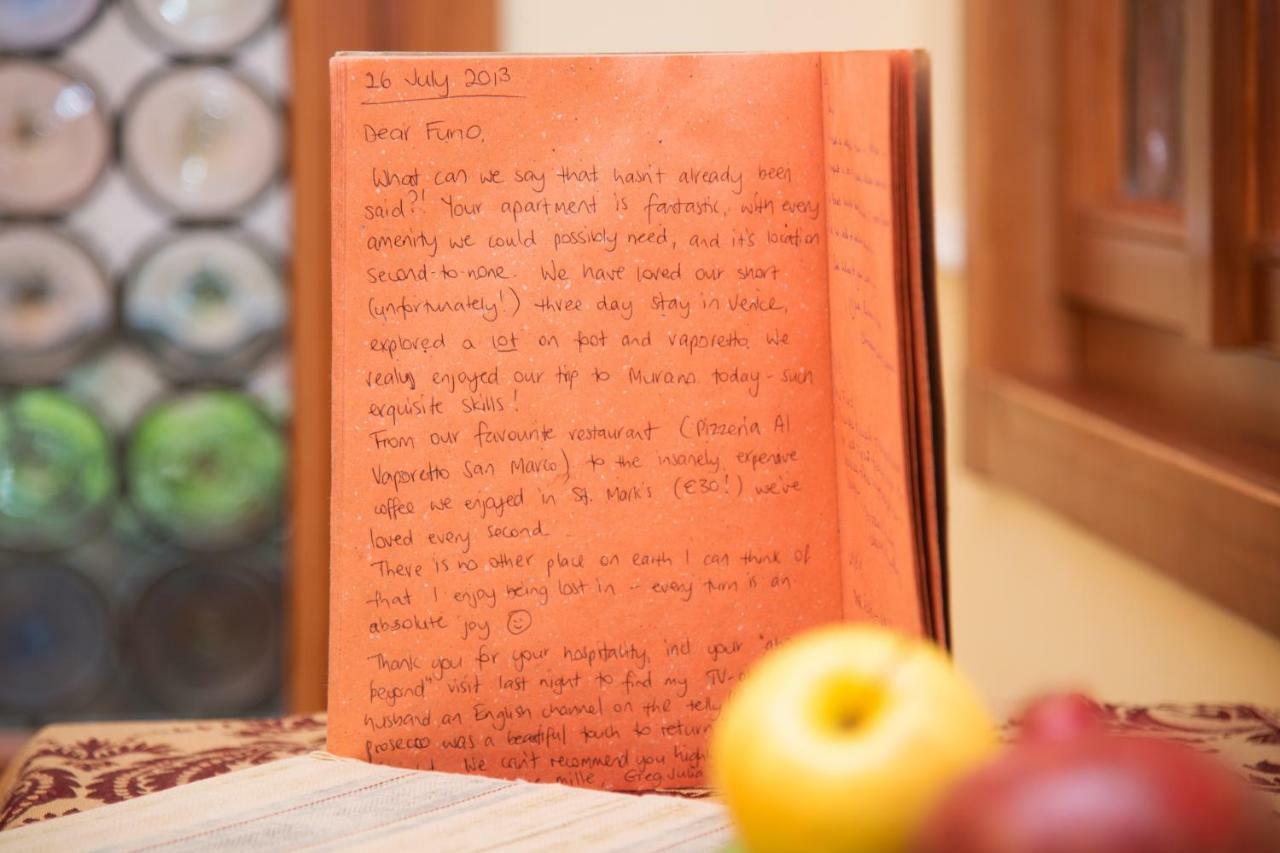 26 July 2013
Dear Funo,
What can we say that hasn't already been
said?! Your apartment is fantastic, with every
amenity we could possibly need, and it's location
second-to-none. We have loved our short
(unfortunately!) three day stay in Venice,
explored a lot on foot and vaporetto. We
really enjoyed our trip to Murano today - such
exquisite skills!
From our favourite restaurant (Pizzeria Al
Vaporetto San Marco) to the insanely expensive
coffee we enjoyed in St. Mark's (€30!) we've
loved every second.
There is no other place on earth I can think of
that I enjoy being lost in - every turn is an
absolute joy ☺
Thank you for your hospitality, incl your
beyond" visit last night to find my TV-
husband an English channel on the telly
prosecco was a beautiful touch to return
We can't recommend you high
mille Greg, Julia